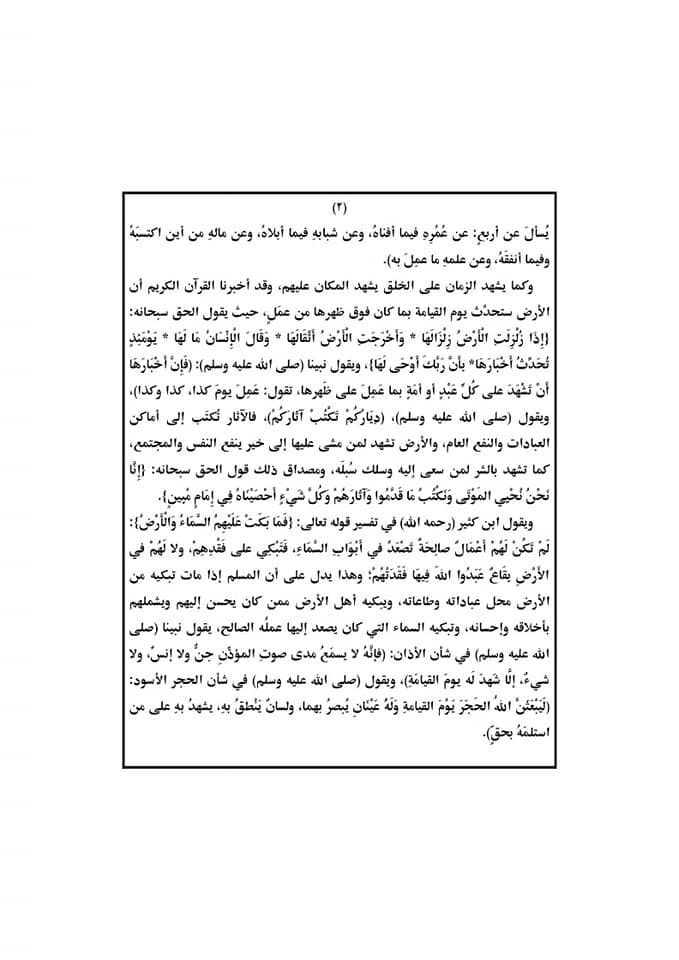 (٢)
يُسألَ عن أربعٍ: عن عُمُرِهِ فيما أفناهُ، وعن شبابهِ فيما أبلاهُ، وعن مالهِ من أين اكتسبَهُ
وفيما أنفقَهُ، وعن علمهِ ما عمِلَ به).
وكما يشهد الزمان على الخلق يشهد المكان عليهم، وقد أخبرنا القرآن الكريم أن
الأرض ستحدِّث يوم القيامة بما كان فوق ظهرها من عمَلٍ، حيث يقول الحق سبحانه:
{إِذَا زُلْزِلَتِ الْأَرْضُ زِلْزَالَهَا * وَأَخْرَجَتِ الْأَرْضُ أَثْقَالَهَا * وَقَالَ الْإِنْسَانُ مَا لَهَا * يَوْمَئِذٍ
تُحَدِّثُ أَخْبَارَهَا* بِأَنَّ رَبَّكَ أَوْحَى لَهَا}، ويقول نبينا (صلى الله عليه وسلم): (فَإِنَّ أَخْبَارَهَا
أَنْ تَشْهَدَ على كُلِّ عَبْدٍ أو أمَةٍ بما عَمِلَ على ظَهرِها، تقول: عَمِلَ يومَ كذا، كذا وكذا)،
ويقول (صلى الله عليه وسلم)، (دِيَارُكُمْ تُكْتَبْ آثَارُكُمْ)، فالآثار تُكتَب إلى أماكن
العبادات والنفع العام، والأرض تشهد لمن مشى عليها إلى خير ينفع النفس والمجتمع،
كما تشهد بالشر لمن سعى إليه وسلك سُبلَه، ومصداق ذلك قول الحق سبحانه: {إِنَّا
نَحْنُ نُحْيِي المَوْتَى وَنَكْتُبُ مَا قَدَّمُوا وَآثَارَهُمْ وَكُلَّ شَيْءٍ أَحْصَيْنَاهُ فِي إِمَامٍ مُبِينٍ}.
ويقول ابن كثير (رحمه الله) في تفسير قوله تعالى: {فَمَا بَكَتْ عَلَيْهِمُ السَّمَاءُ وَالْأَرْضُ}:
لَمْ تَكُنْ لَهُمْ أَعْمَالٌ صالِحَةٌ تَصْعَدُ في أَبْوَابِ السَّمَاءِ، فَتَبْكِي على فَقْدِهِمْ، ولا لَهُمْ في
الأَرْضِ بِقَاعٌ عَبَدُوا اللهَ فِيهَا فَقَدَتْهُمْ؛ وهذا يدل على أن المسلم إذا مات تبكيه من
الأرض محل عباداته وطاعاته، ويبكيه أهل الأرض ممن كان يحسن إليهم ويشملهم
بأخلاقه وإحسانه، وتبكيه السماء التي كان يصعد إليها عملُه الصالح، يقول نبينا (صلى
الله عليه وسلم) في شأن الأذان: (فإنَّهُ لا يسمَعُ مدى صوتِ المؤذّنِ جنٌّ ولا إنسٌ، ولا
شيءٌ، إلَّا شَهِدَ له يومَ القيامَةِ)، ويقول (صلى الله عليه وسلم) في شأن الحجر الأسود:
(لَيَبْعَثَنَّ اللهُ الحَجَرَ يَوْمَ القيامةِ وَلَهُ عَيْنَانِ يُبصرُ بهما، ولسانٌ يَنْطقُ بهِ، يشهدُ بهِ على من
استلمَهُ بحقٍّ).